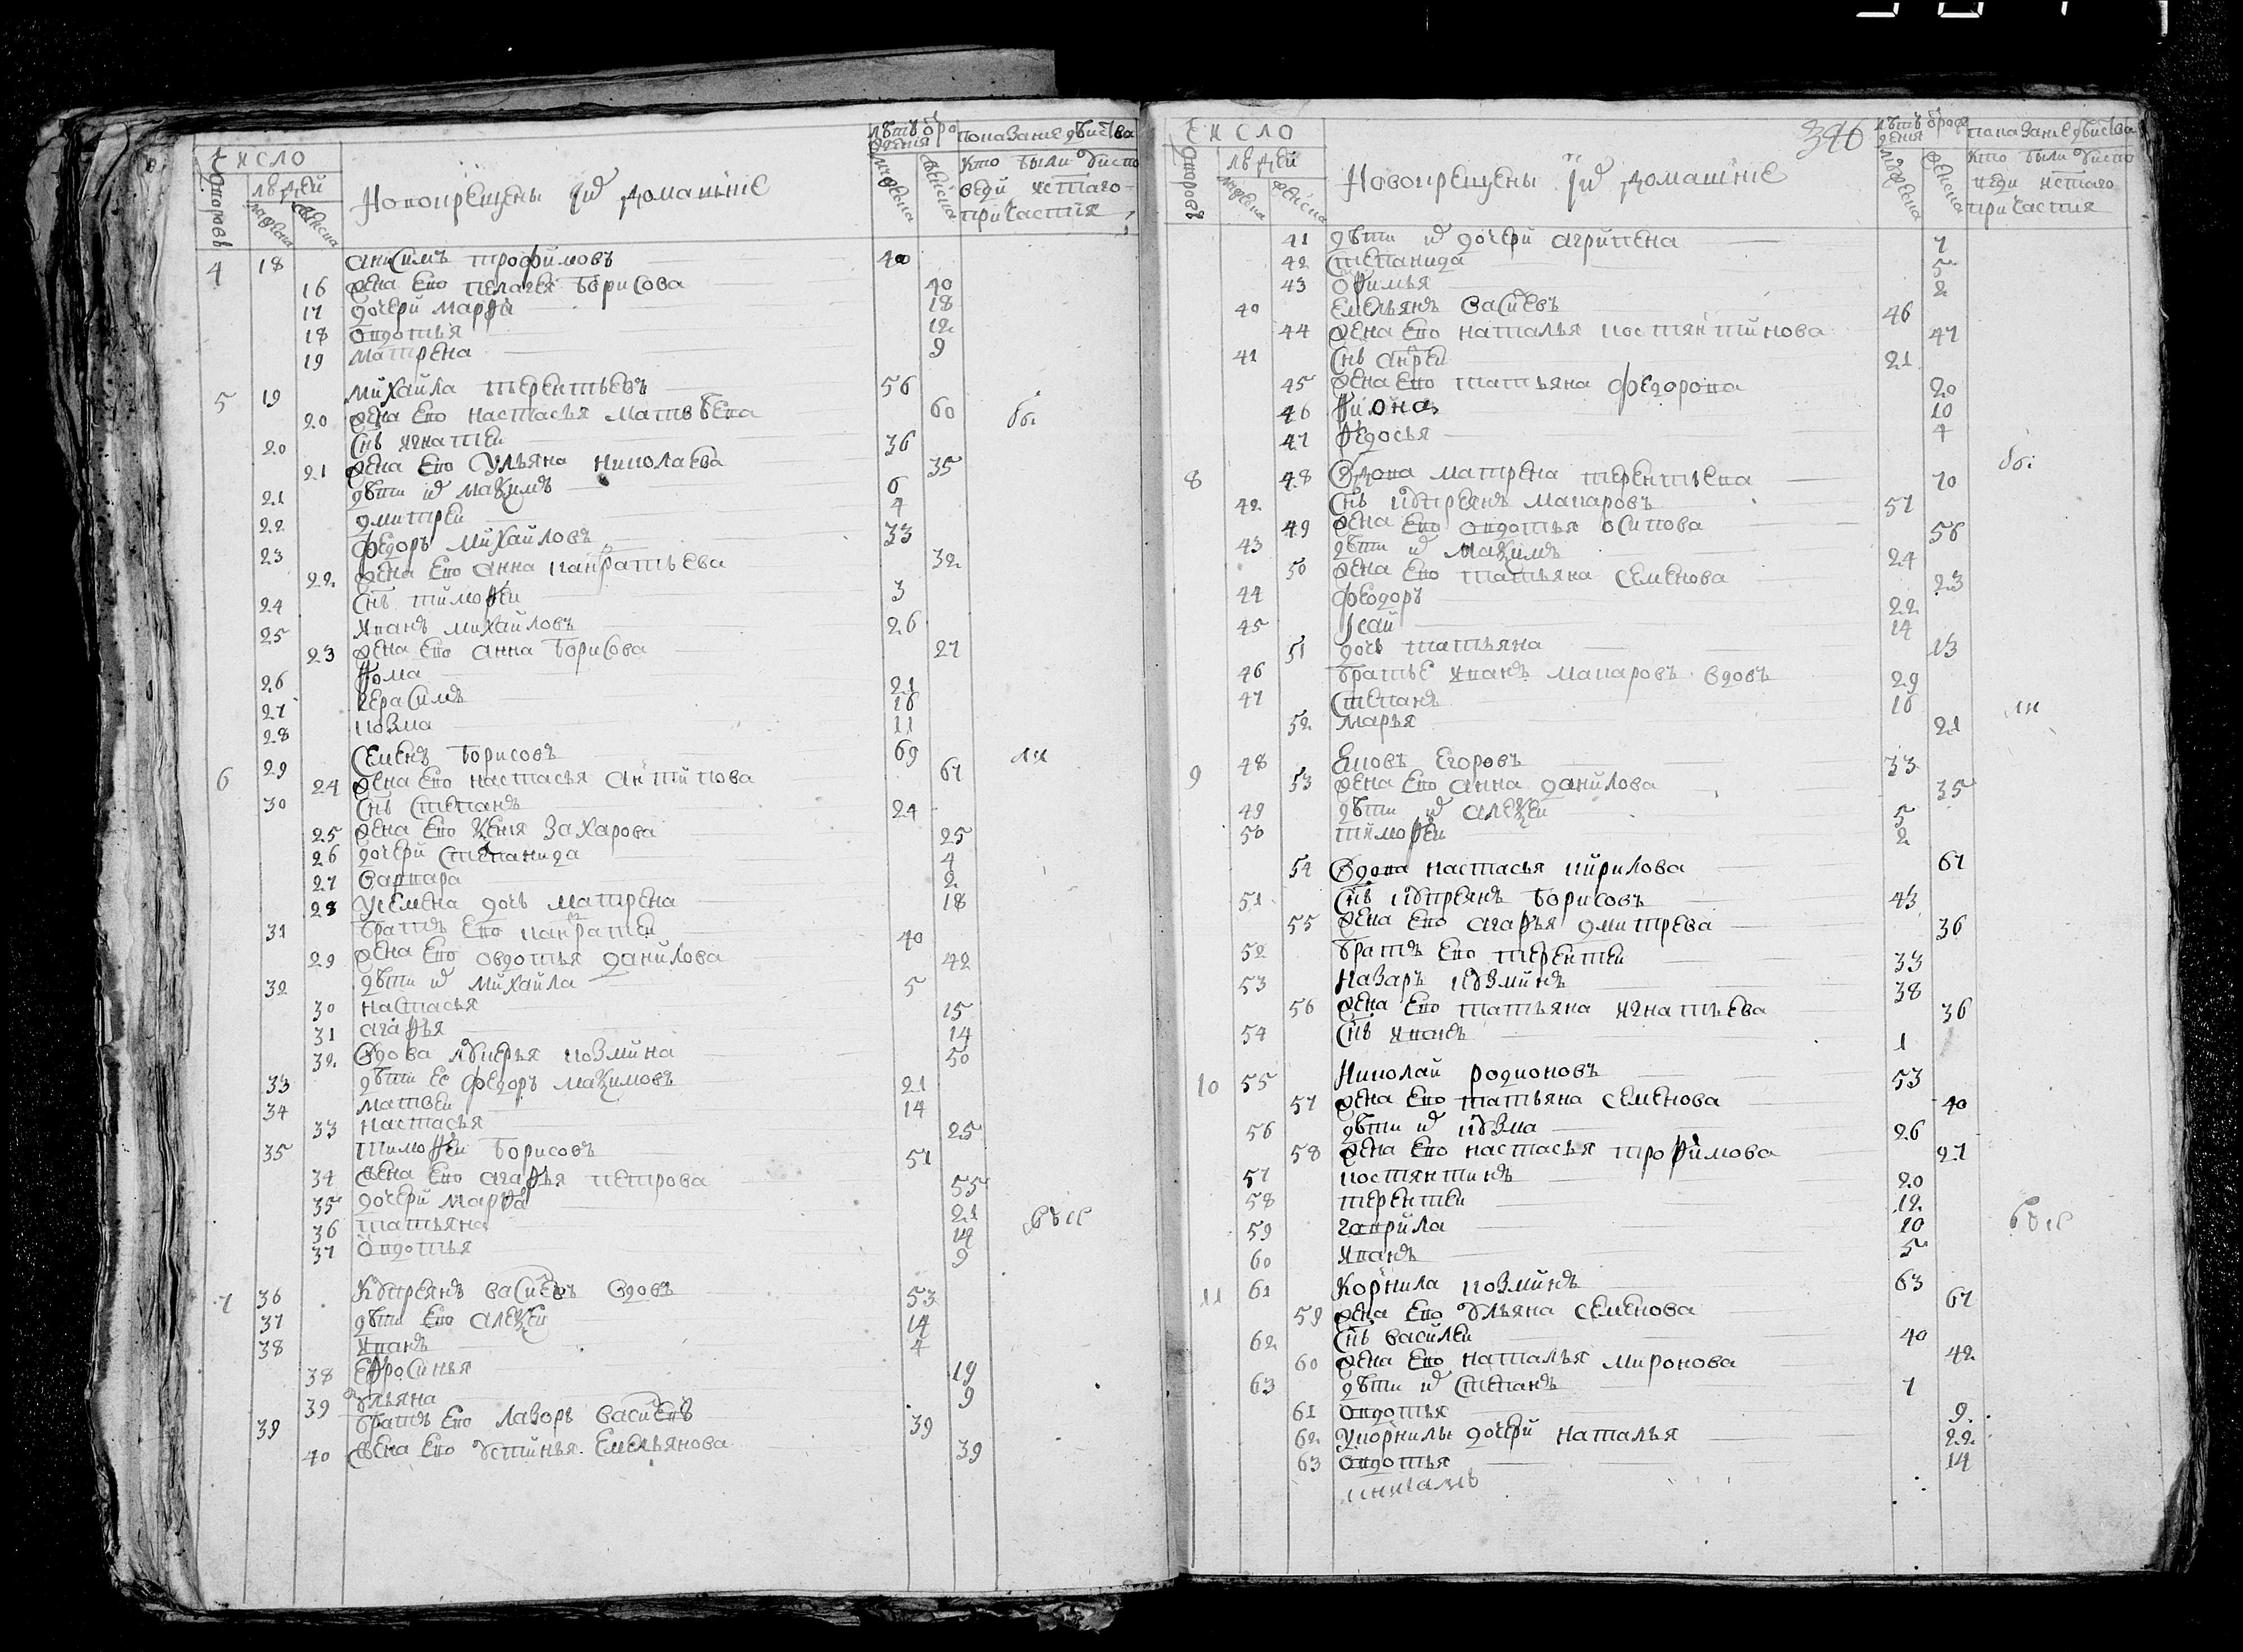 Число
Дворовъ
людей
мужеска
женска
Новокрещены и ихъ домашніе
лѣтъ от рождения
мужеска
женска
показание дѣиства
кто были у испо
веди и стаго
причастия
4 18 Анисимъ трофимовъ 40
16 жена ево пелагея борисова 40
17 дочери марфа 18
18 овдотья 12
19 матрена 9
5 19 михаила терентьевъ 56
20 жена ево настасья матвѣева 60 бы
20 снъ игнатеи 36
21 жена ево Сульяна николаева 35
21 дѣти их маѯимъ 6
22 дмитреи 4
23 федоръ михаиловъ 33
22 жена ево анна панкратьева 32
24 снъ тимофеи 3
25 иванъ михаиловъ 26
23 жена ево анна борисова 27
26 фома 21
27 герасимъ 16
28 козма 11
6 29 Семенъ борисовъ 69 ли
24 жена ево настасья антипова 67
30 снъ степанъ 24
25 жена ево ѯеня захарова 25
26 дочери степанида 4
27 варвара 2
28 у семена дочь матрена 18
31 братъ ево панкратеи 40
29 жена ево овдотья данилова 42
32 дѣти их михаила 5
30 настасья 15
31 агафья 14
32 вдова лукерья козмина 50
33 дѣти ее федоръ маѯимовъ 21
34 матвеи 14
33 настасья 25
35 тимофеи борисовъ 51
34 жена ево агафья петрова 55
35 дочери марфа 21
36 татьяна 14
37 овдотья 9
7 36 Куприянъ васиевъ вдовъ 53
37 дѣти ево алеѯеи 14
38 иванъ 4
38 ефросинья 19
39 ульяна 9
39 братъ ево лазоръ васиевъ 39
40 жена ево устинья емельянова 39
Число
Дворовъ
людей
мужеска
женска
Новокрещены и ихъ домашніе
346
лѣтъ от рождения
мужеска
женска
показание дѣиства
кто были у испо
веди и стаго
причастия
41 дѣти их дочери агрипена 7
42 степанида 5
43 офимья 2
40 емельянъ васиевъ 46
44 жена ево наталья костянтинова 47
41 снъ андреи 21
45 жена ево татьяна федорова 20
46 фиона 10
47 федосья 4
8 48 вдова матрена терентьева 70 бы
42 снъ куприянъ макаровъ 57
49 жена ево овдотья осипова 56
43 дѣти их маѯимъ 24
50 жена ево татьяна семенова 23
44 феодоръ 22
45 исаи 14
51 дочь татьяна 13
46 братье иванъ макаровъ вдовъ 29
47 степанъ 16
52 марья 21 ли
9 48 Яковъ егоровъ 33
53 жена ево анна данилова 35
49 дѣти их алеѯеи 5
50 тимофеи 2
54 вдова настасья кирилова 67
51 снъ куприянъ борисовъ 43
55 жена ево агафья дмитрева 36
52 братъ ево терентеи 33
53 назаръ кузминъ 38
56 жена ево татьяна игнатьева 36
54 снъ иванъ 1
10 55 Николаи родионовъ 53
57 жена ево татьяна семенова 40
56 дѣти их кузма 26
58 жена ево настасья трофимова 27
57 костянтинъ 20
58 терентеи 12
59 гаврила 10
60 иванъ 5
11 61 Корнила козминъ 63
59 жена ево ульяна семенова 67
62 снъ василеи 40
60 жена ево наталья миронова 42
63 дѣти их степанъ 7
61 овдотья 9
62 у корнилы дочери наталья 22
63 овдотья 14